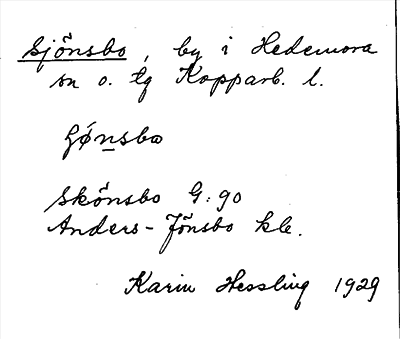 Sjönsbo, by i Hedemora
sn o. tg Kopparb. l.
Skönsbo G:90
Anders-Jönsbo kle.
Karin Hessling 1929